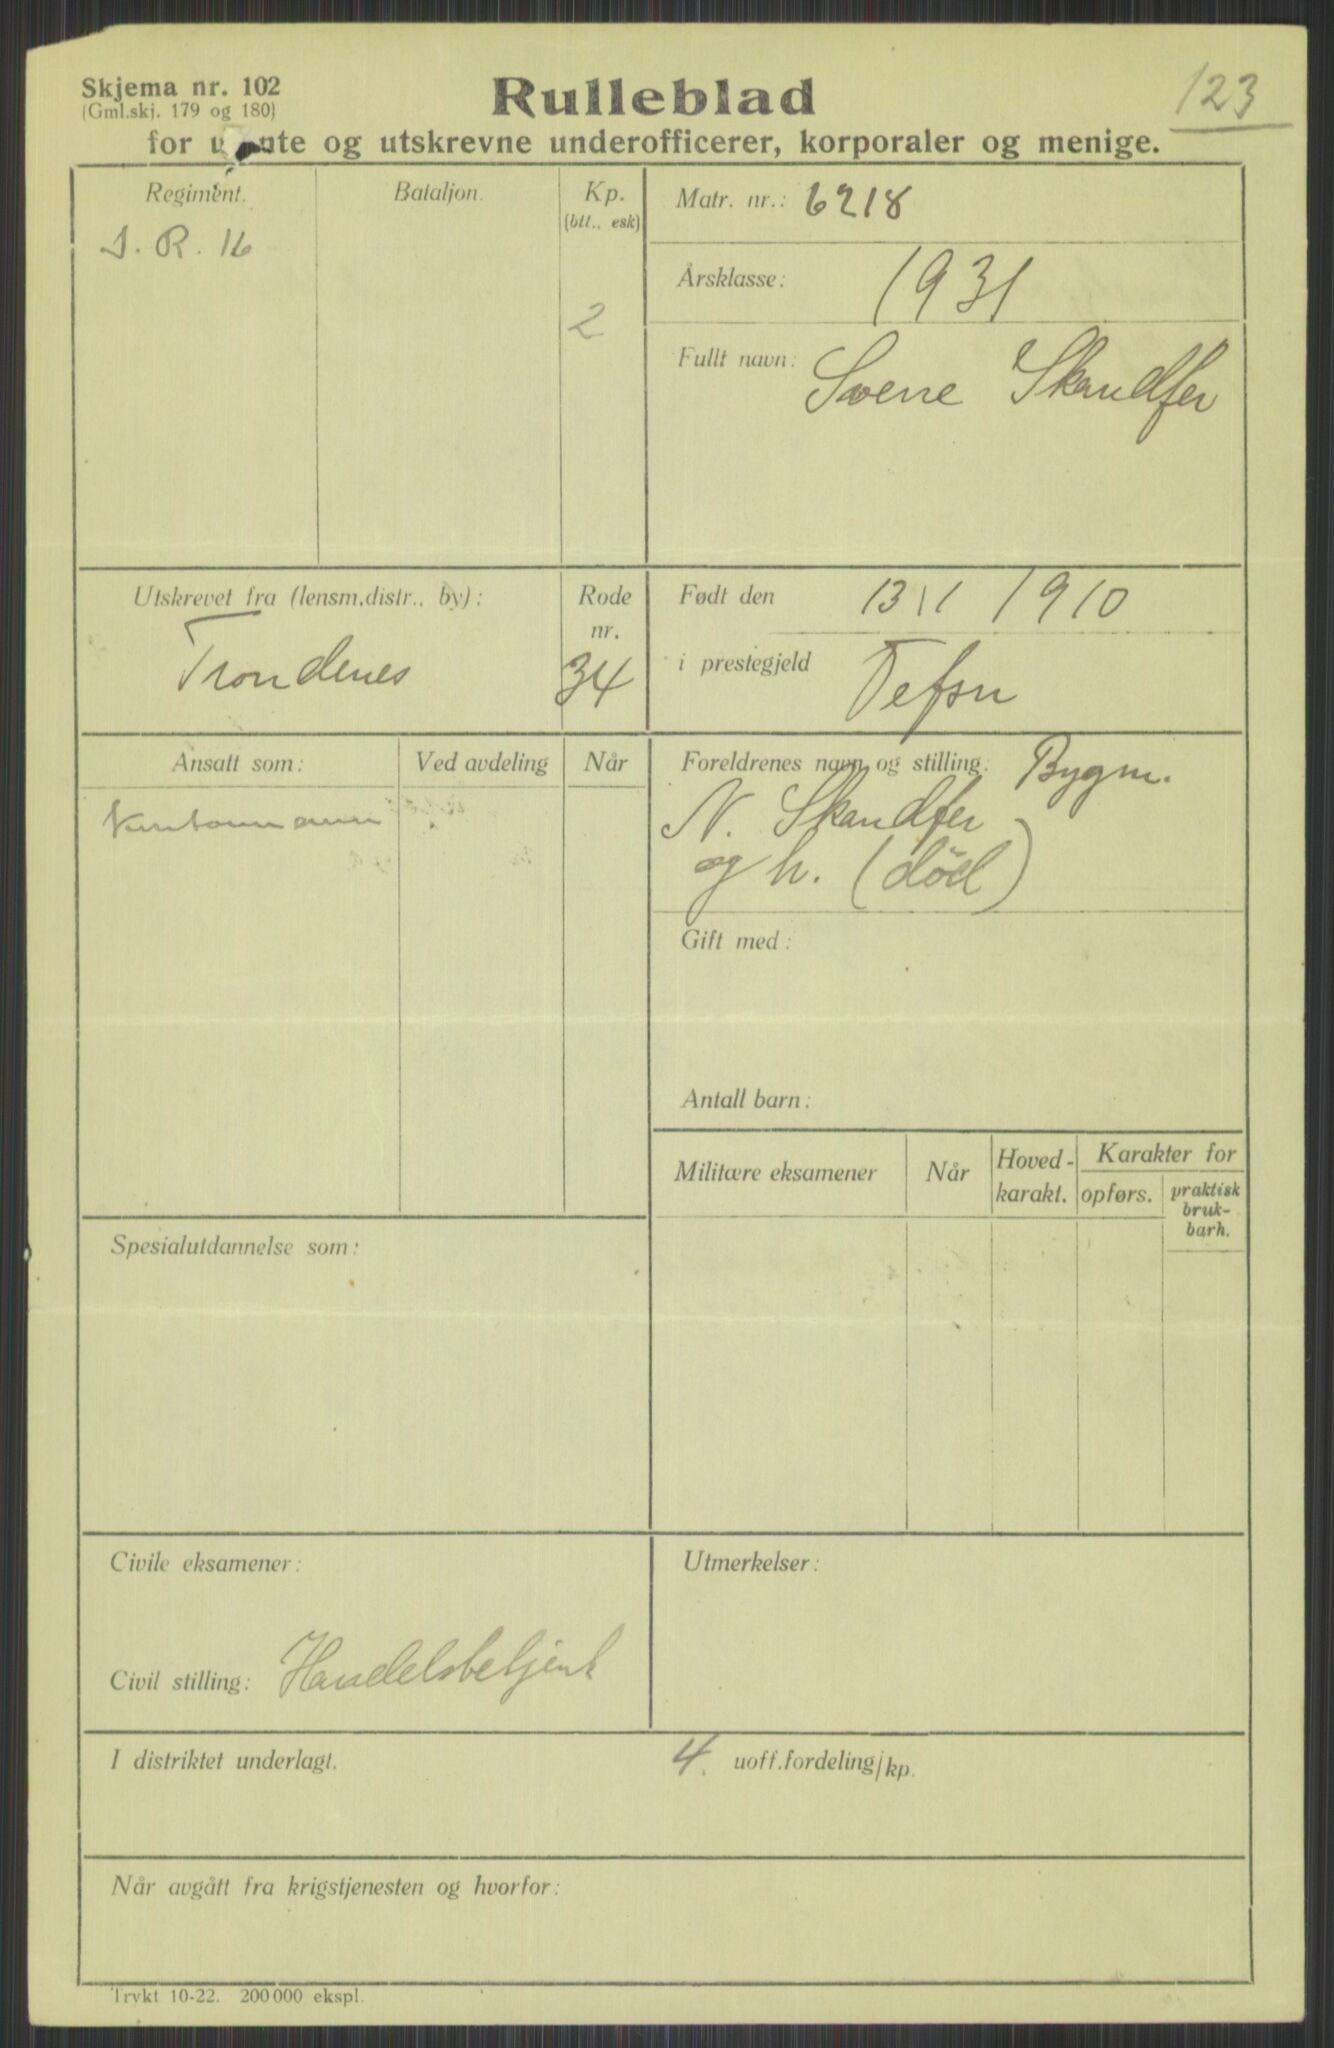 Skjema nr. 102
(Gml.skj. 179 og 180)
Rulleblad
123
for og utskrevne underofficerer, korporaler og menige.
Regiment.
I. R. 16
Bataljon.
Kp.
(btt., esk)
2
Matr. nr.: 6218
Årsklasse: 1931
Fullt navn: Sverre Skandfer
Utskrevet fra (lensm.distr., by):
Trondenes
Rode
nr.
34
Født den 13/1 1910
i prestegjeld Vefsn
Ansatt som:
Ved avdeling
Når
Foreldrenes navn og stilling: Bygm.
N. Skandfer
og h. (död)
Gift med:
Antall barn:
Militære eksamener
Når
Hoved-
karakt.
Karakter for
opførs.
praktisk
bruk-
barh.
Spesialutdannelse som:
Civile eksamener:
Civil stilling: Handelsbetjent
Utmerkelser:
I distriktet underlagt.
4. uoff.fordeling/kp.
Når avgått fra krigstjenesten og hvorfor:
Trykt 10-22. 200 000 ekspl.